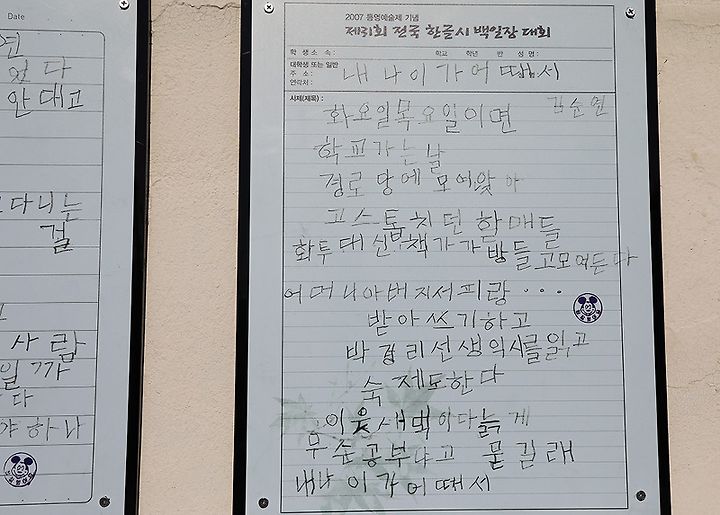 Date
연
있다
안대고
다니는
걸
사람
일까
다
야하나
2007 통영예술제 기념
제31회 전국 한글시 백일장 대회
학생소속 : 학교 학년 반 성명 :
대학생 또는 일반
주소 :
연락처 :
내 나이가 어때서
시제(제목) :
김순연
화요일목요일이면
학교가는날
경로당에 모여앉아
고스톱치던 할매들
화투대신책가가방들고모여든다
어머니아버지서피랑...
받아쓰기하고
박경리선생의시를읽고
숙제도한다
이웃새댁이다늙게
무슨공부냐고 묻길래
내나이가어때서